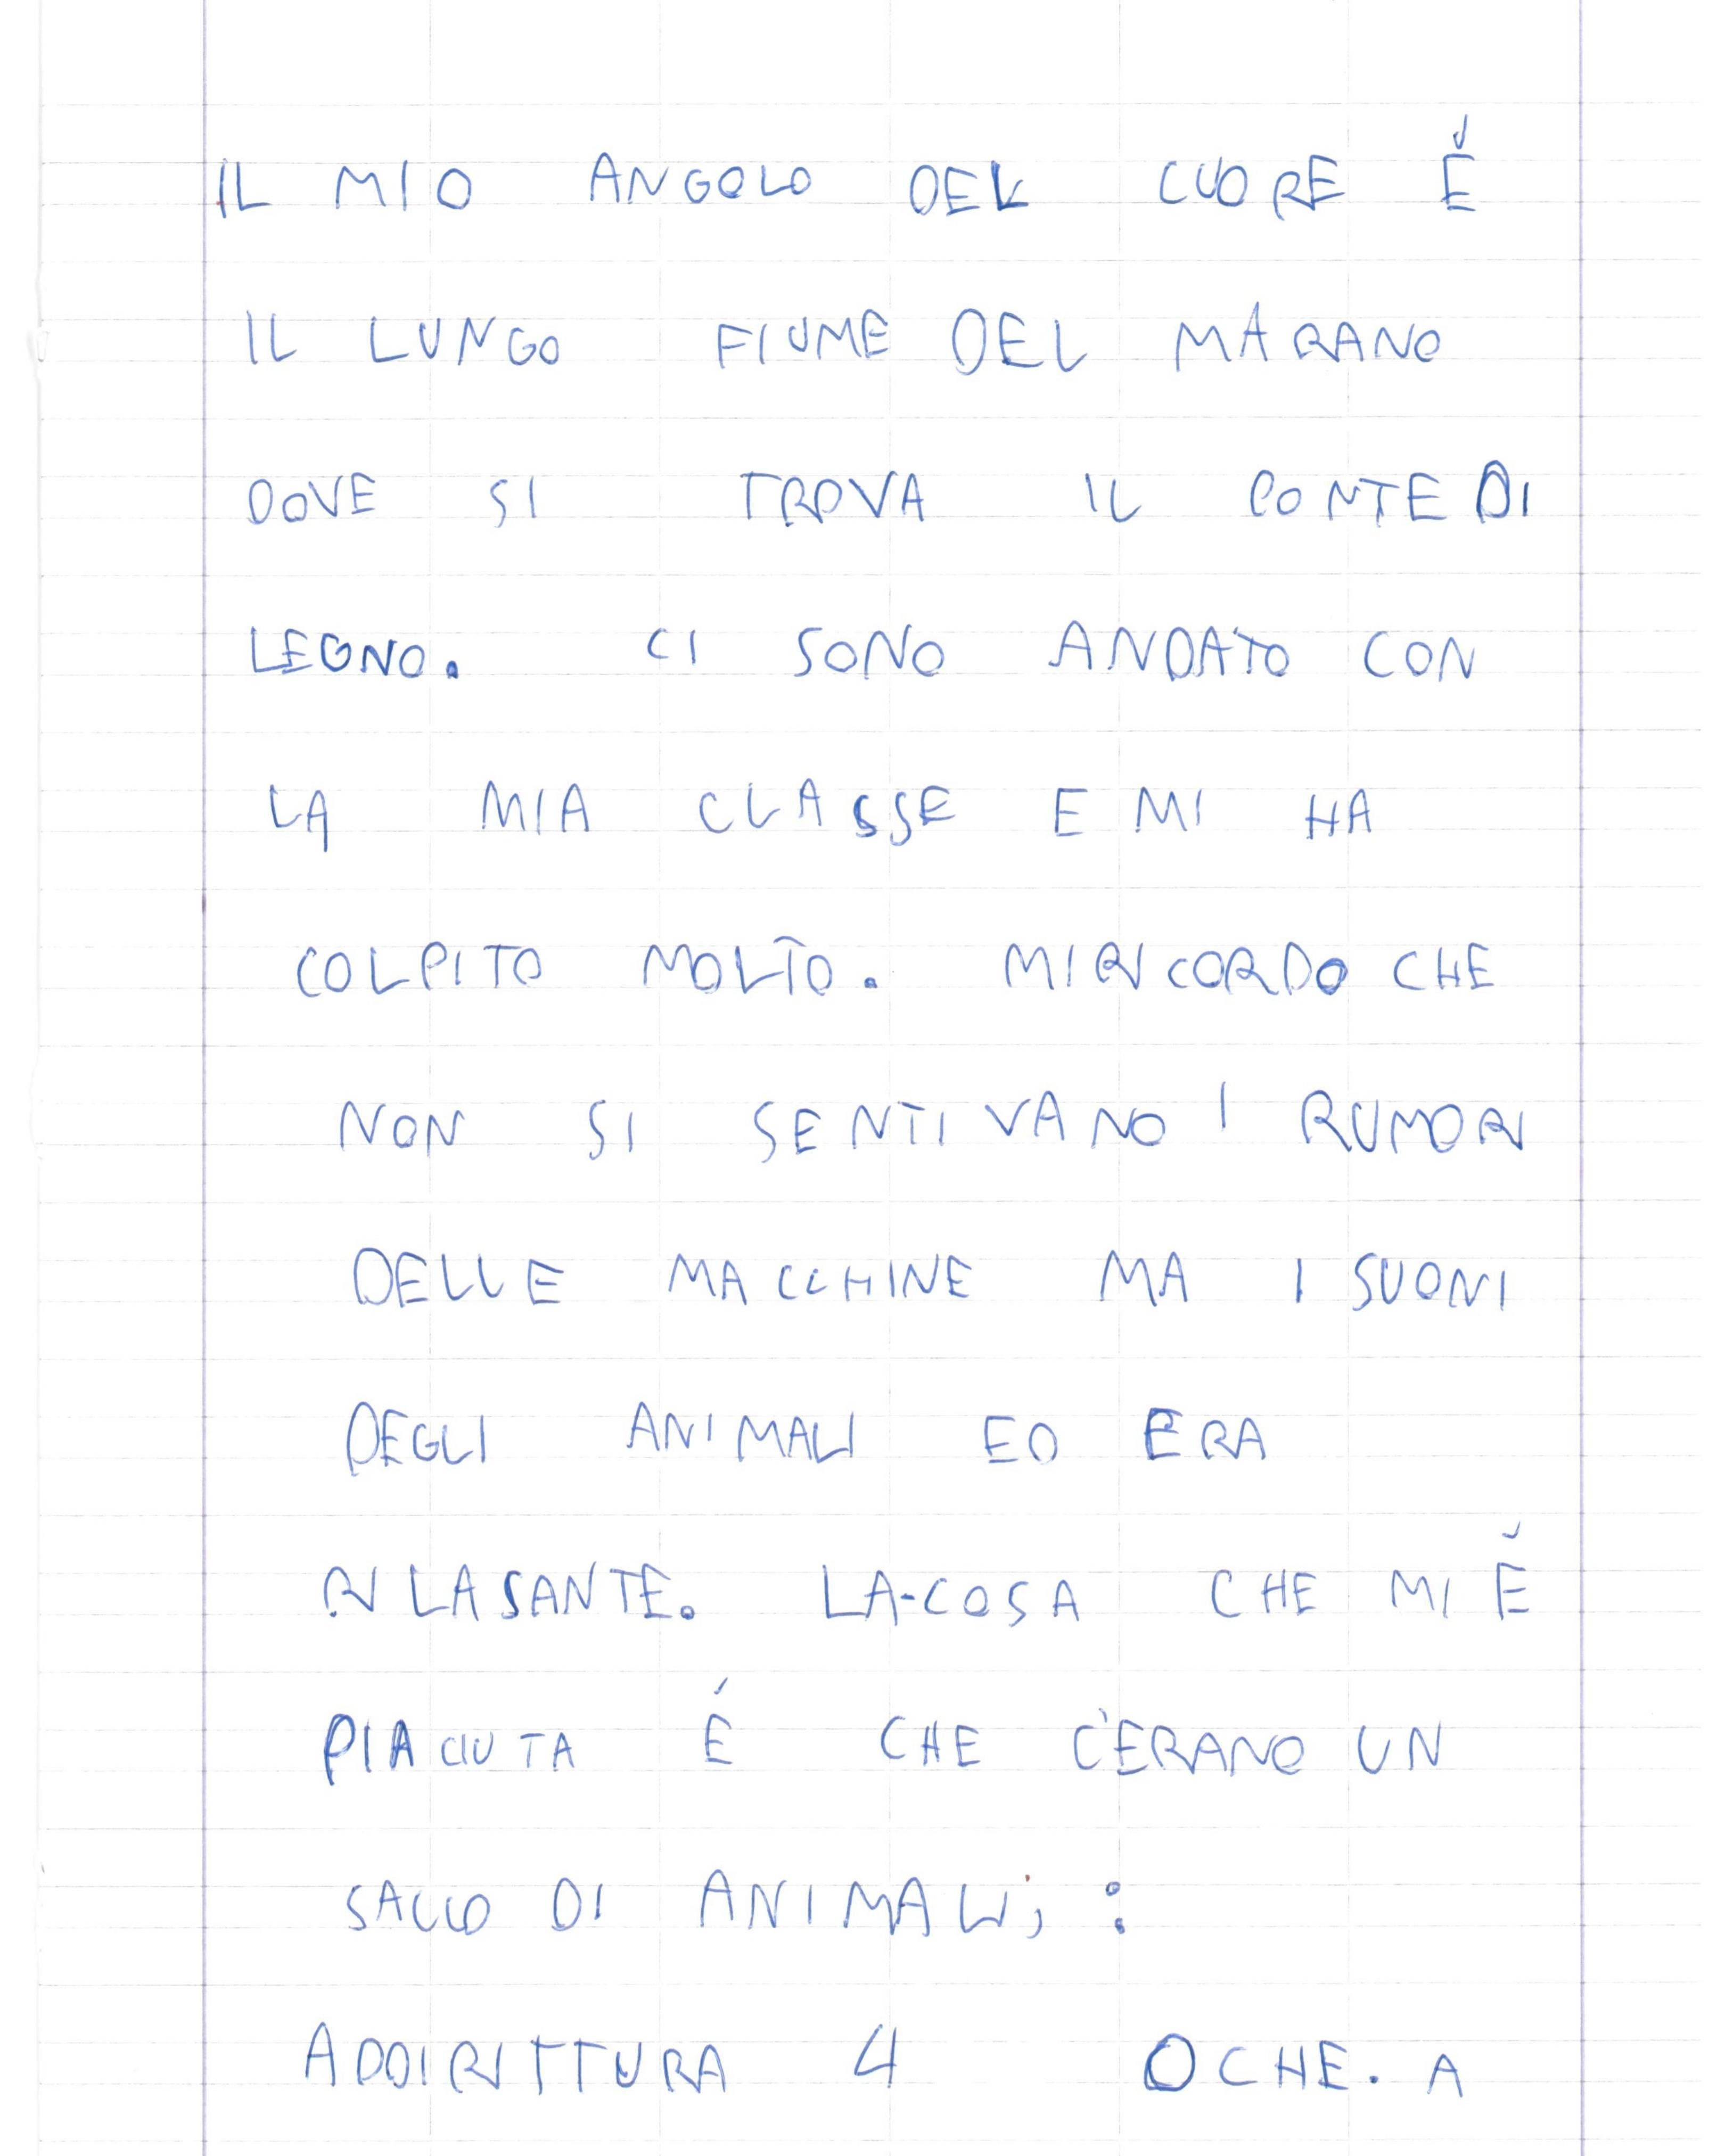 IL MIO ANGOLO DEL CUORE È
IL LUNGO FIUME DEL MARANO
DOVE SI TROVA IL PONTE DI
LEGNO. CI SONO ANDATO CON
LA MIA CLASSE E MI HA
COLPITO MOLTO. MI RICORDO CHE
NON SI SENTIVANO I RUMORI
DELLE MACCHINE MA I SUONI
DEGLI ANIMALI ED ERA
RILASANTE. LA-COSA CHE MI È
PIACIUTA É CHE C'ERANO UN
SACCO DI ANIMALI; :
ADDIRITTURA 4 OCHE. A